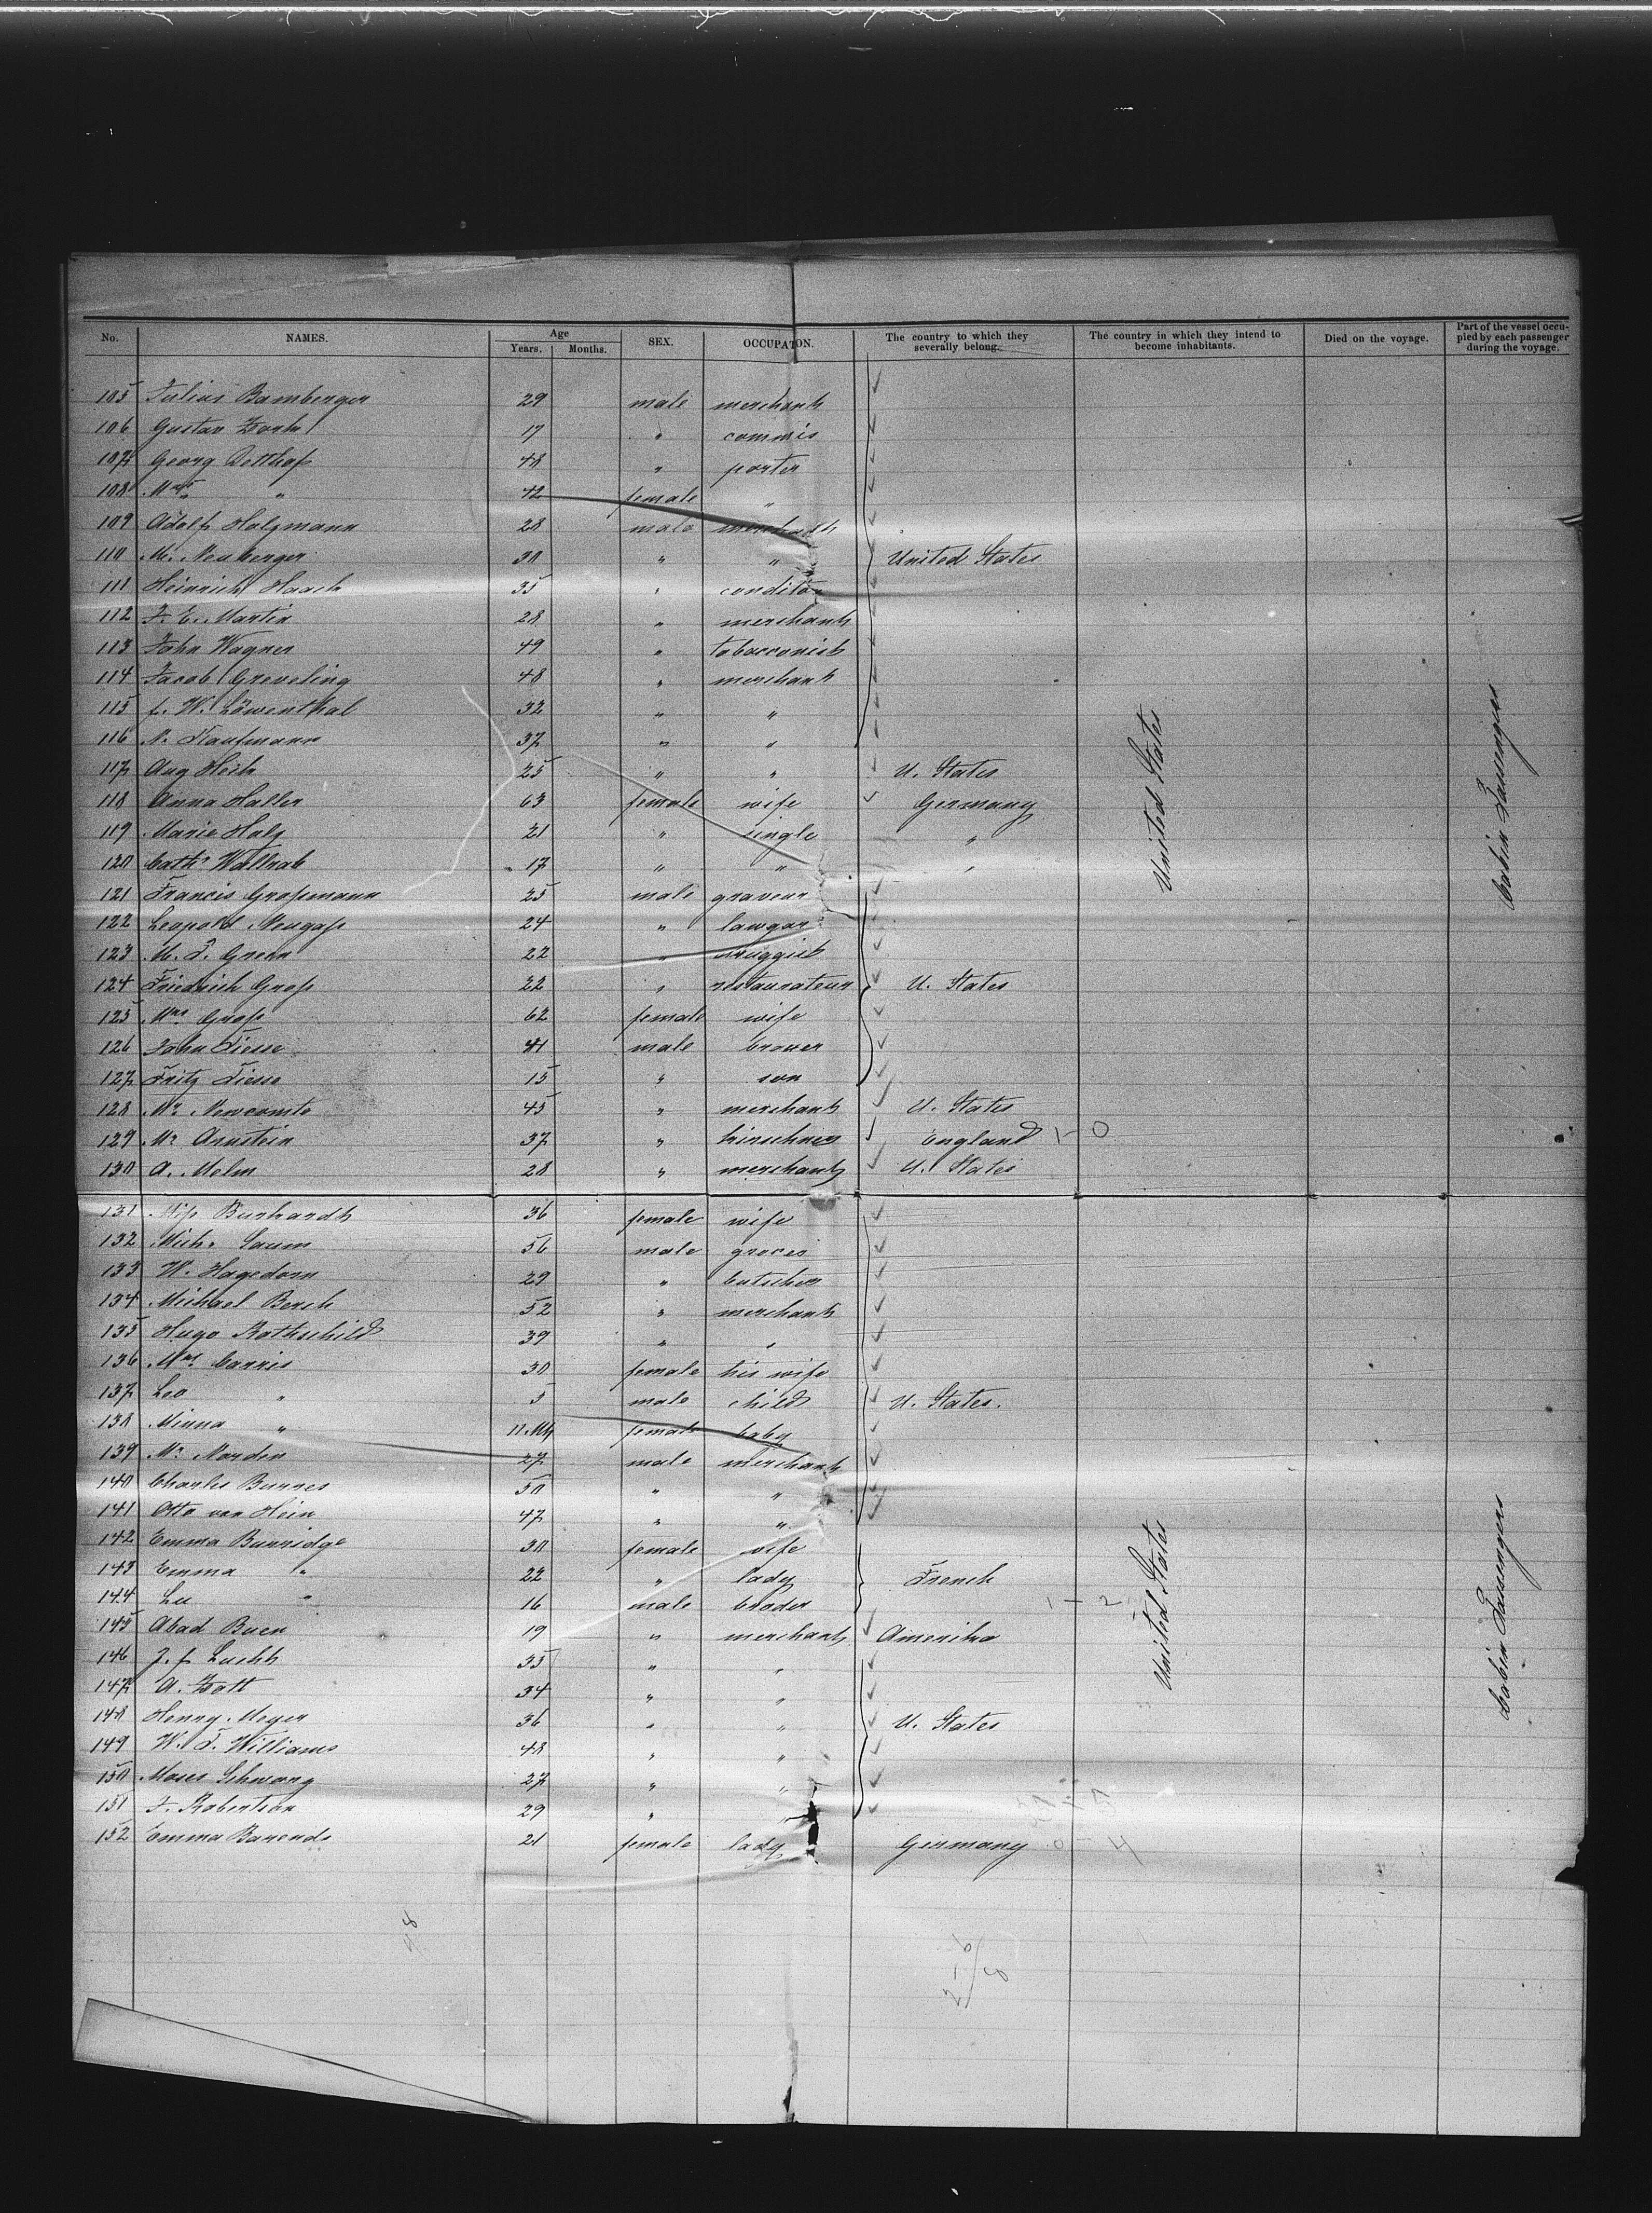 No. NAMES. Age Years. Months. SEX. OCCUPATON. The country to which they severally belong. The country in which they intend to become inhabitants. Died on the voyage. Part of the vessel occupied by each passenger during the voyage.
105 Julius Bamberger 29 male merchant
106 Gustav 17 " commis
107 Georg Detthof 48 " porter
108 Mrs " 42 female "
109 Adolf Holzmann 28 male merchant
110 M. Neuberger 30 " " United States
111 Heinrich Haach 35 " conditor
112 F. E. Martin 28 " merchant
113 John Wagner 49 " tobacconist
114 Jacob Greveling 48 " merchant
115 L. W. Löwenthal 32 " "
116 N. Kaufmann 37 " "
117 Aug 25 " " U. States
118 Anna Haller 63 female wife Germany
119 Marie Holz 21 " single "
120 Cath. Wallrab 17 " " "
121 Francis Grossmann 25 male graveur
122 Leopold Neugass 24 "
123 M. Green 22 " druggist
124 Friedrich Gross 22 " restaurateur U. States
125 Mrs Gross 62 female wife
126 John Tiesse 41 male brouer
127 Fritz Tiesse 15 " son
128 Mr Newcomte 45 " merchant U. States
129 Mr Arnstein 37 " England 1-0
130 A. Melm 28 " merchant U. States
131 Miss Burhardt 36 female wife
132 Mich. 56 male grocer
133 W. Hagedorn 29 " butscher
134 Michael Bersh 52 " merchant
135 Hugo Rothschild 39 " "
136 Mrs Carris 30 female his wife
137 Leo " 5 male child U. States.
138 Minna " 11 Mth female baby
139 Mr Norden 27 male merchant
140 Charles Burnes 50 " "
141 Otto von Hein 47 " "
142 Emma Burridge 30 female wife
143 Emma " 22 " lady French
144 " 16 male broder 1-2
145 Abad Buen 19 " merchant Amerika
146 35 " "
147 A. 34 " "
148 Henry Meyer 36 " " U. States
149 W. T. Williams 48 " "
150 Moses Schwarz 27 " "
151 F. Robertson 29 " "
152 Emma Barends 21 female lady Germany 0-4
United States
Cabin Passengers
United States
Cabin Passengers